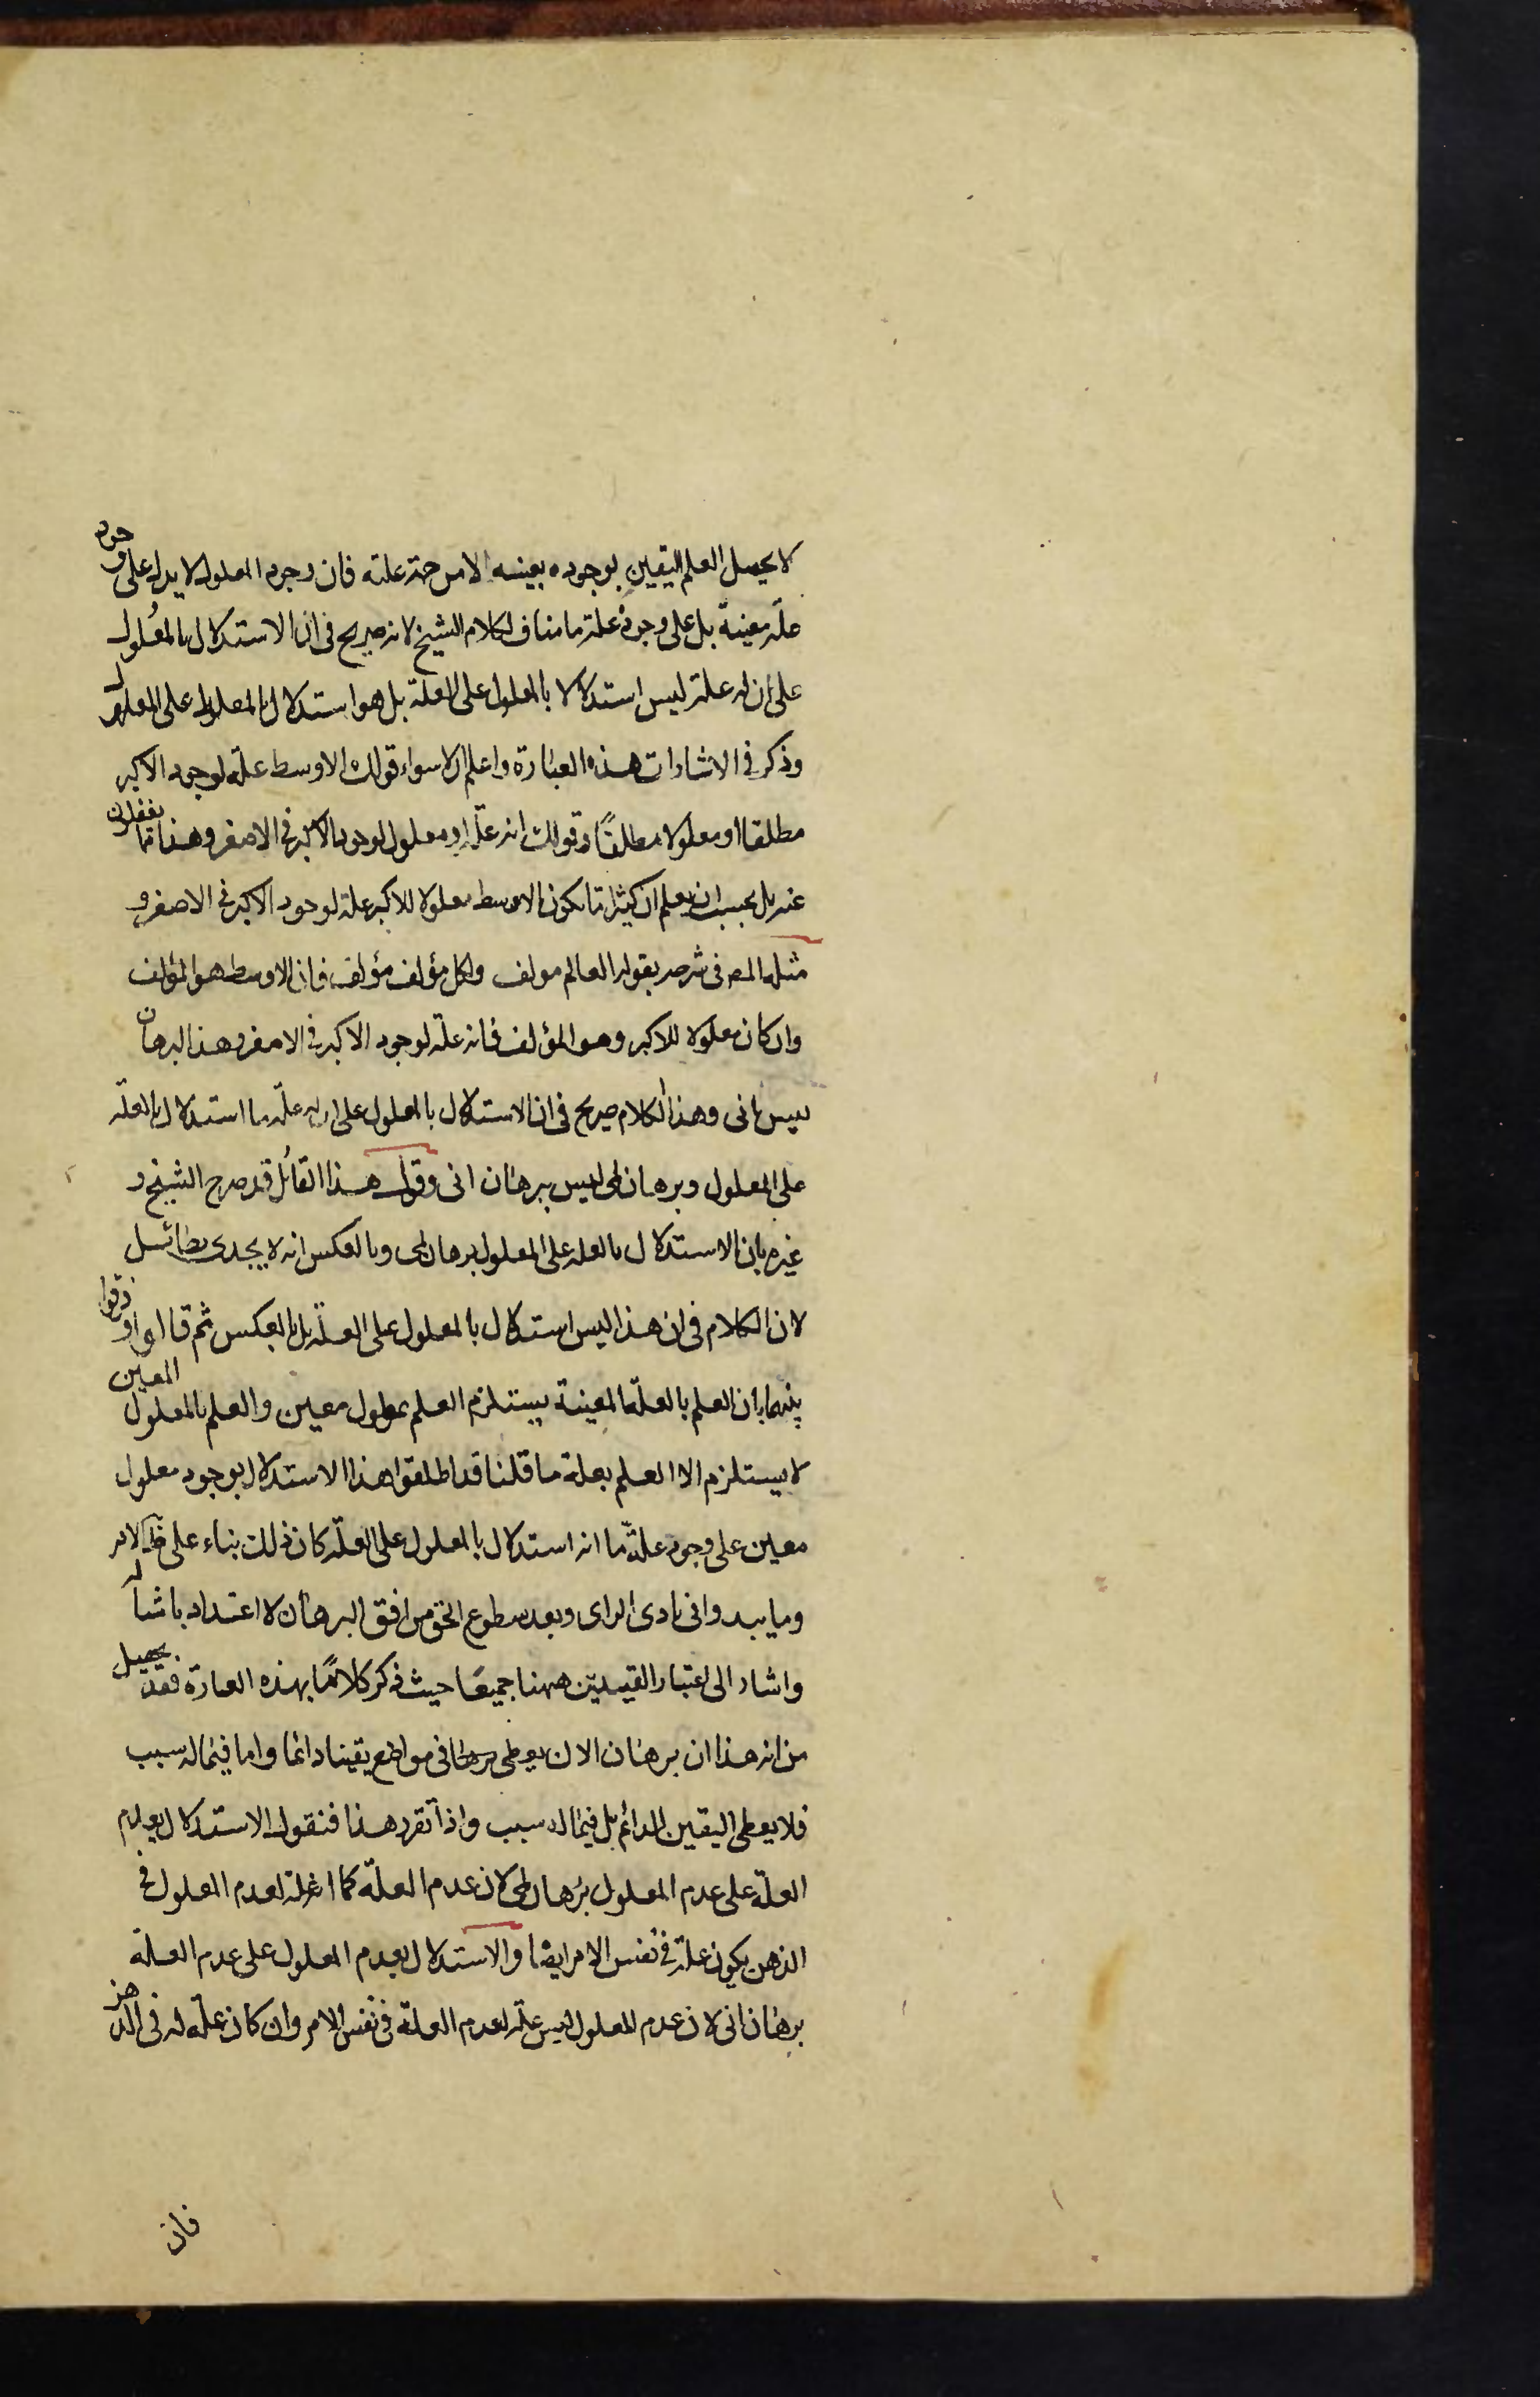 لا يحصل العلم اليقين بوجوده بعينه الا من جهة علته فان وجود المعلول لا يدل على وجود
علة معينة بل على وجود علة ما مناف لكلام الشيخ لانه صريح فى ان الاستدلال بالمعلول
على ان له علة ليس استدلالا بالمعلول على العلة بل هو استدلال بالعلة على المعلول
وذكر فى الاشارات هذه العبارة واعلم ان لا سواء قولك الاوسط علة لوجود الاكبر
مطلقا او معلولا مطلقا وقولك انه علة او معلول لوجود الاكبر فى الاصغر وهذا مما يغفلون
عنه بل يجب ان يعلم ان كثيرا ما يكون الاوسط معلولا للاكبر علة لوجود الاكبر فى الاصغر و
مثله المص فى شرحه بقوله العالم مولف ولكل مؤلف مؤلف فان الاوسط هو المؤلف
وان كان معلولا للاكبر وهو المؤلف فانه علة لوجود الاكبر فى الاصغر وهذا البرهان
ليس بانى وهذا الكلام صريح فى ان الاستدلال بالمعلول على ان له علة ما استدلال بالعلة
على المعلول وبرهان لمى ليس ببرهان انى وقول هذا القائل قد صرح الشيخ و
غيره بان الاستدلال بالعلة على المعلول برهان لمى وبالعكس انه لا يجدى بطائل
لان الكلام فى ان هذا ليس استدلال بالمعلول على العلة بل بالعكس ثم قالوا و فرقوا
بينهما بان العلم بالعلة المعينة يستلزم العلم بمعلول معين والعلم بالمعلول المعين
لا يستلزم الا العلم بعلة ما قلنا قد اطلقوا هذا الاستدلال بوجود معلول
معين على وجود علة ما انه استدلال بالمعلول على العلة كان ذلك بناء على ظ الامر
وما يبدو فى بادى الراى وبعد سطوع الحق من افق البرهان لا اعتداد بامثاله
واشار الى اعتبار القيدين ههنا جميعا حيث ذكر كلاما بهذه العبارة فقد تحصل
من انه هذا ان برهان الان يعطى فى مواضع يقينا دائما واما فيما له سبب
فلا يعطى اليقين الدائم بل فيما له سبب واذا تقرر هذا فنقول الاستدلال بعدم
العلة على عدم المعلول برهان لمى لان عدم العلة كما انه علة لعدم المعلول فى
الذهن يكون علة فى نفس الامر ايضا والاستدلال بعدم المعلول على عدم العلة
برهان انى لان عدم المعلول ليس علة لعدم العلة فى نفس الامر وان كان علة له فى الذهن
فان